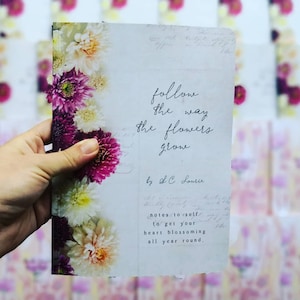 follow
the way
the flowers
grow
by
notes to self
to get your
heart blossoming
all year round.